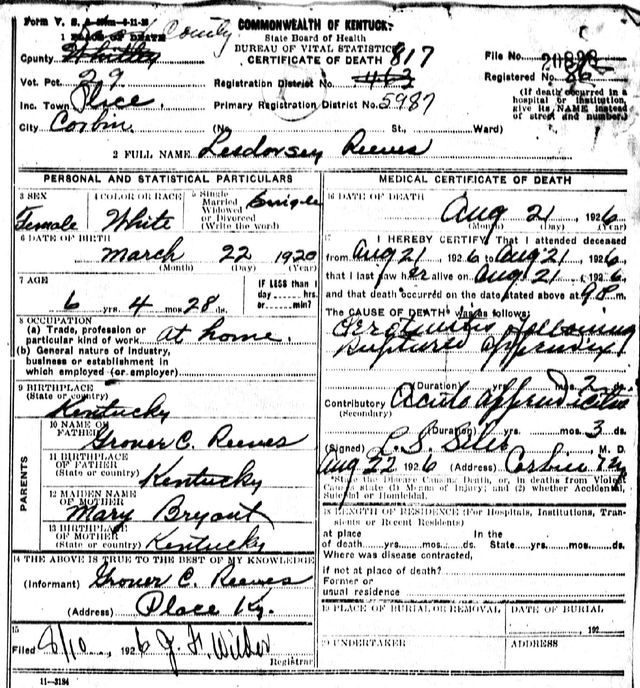 Form V. S.
County
COMMONWEALTH OF KENTUCKY
1 PLACE OF DEATH
State Board of Health
BUREAU OF VITAL STATISTICS
County Whitley
CERTIFICATE OF DEATH 817
File No.
Vot. Pct. 29
Registration District No. 463
Registered No. 86
Inc. Town
Primary Registration District No. 5987
(If death occurred in a hospital or institution, give its NAME instead of street and number.)
City Corbin (No. St., Ward)
2 FULL NAME Lesdorsey Reeves
PERSONAL AND STATISTICAL PARTICULARS
3 SEX Female
4 COLOR OR RACE White
5 Single Married Widowed or Divorced (Write the word) Single
6 DATE OF BIRTH
March 22 1920
(Month) (Day) (Year)
7 AGE
6 yrs. 4 mos. 28 ds.
IF LESS than 1 day hrs. or min.?
8 OCCUPATION
(a) Trade, profession or particular kind of work at home.
(b) General nature of industry, business or establishment in which employed (or employer)
9 BIRTHPLACE
(State or country)
Kentucky
PARENTS
10 NAME OF FATHER
Grover C. Reeves
11 BIRTHPLACE OF FATHER
(State or country) Kentucky
12 MAIDEN NAME OF MOTHER
Mary Bryant
13 BIRTHPLACE OF MOTHER
(State or country) Kentucky
14 THE ABOVE IS TRUE TO THE BEST OF MY KNOWLEDGE
(Informant) Grover C. Reeves
(Address) Place Ky.
15
Filed 1926 J. F. Wilder
Registrar
11-3184
MEDICAL CERTIFICATE OF DEATH
16 DATE OF DEATH
Aug 21, 1926
(Month) (Day) (Year)
17 I HEREBY CERTIFY, That I attended deceased
from Aug 21 1926 to Aug 21, 1926
that I last saw her alive on Aug 21, 1926,
and that death occurred on the date stated above at 9 P.m.
The CAUSE OF DEATH was as follows:
Peritonitis following
Ruptured appendix
(Duration) yrs. mos. 2 ds.
Contributory Acute appendicitis
(Secondary)
(Duration) yrs. mos. 3 ds.
(Signed) M. D.
Aug 22 1926 (Address) Corbin Ky
*State the Disease Causing Death, or, in deaths from Violent Causes state (1) Means of Injury; and (2) whether Accidental, Suicidal or Homicidal.
18 LENGTH OF RESIDENCE (For Hospitals, Institutions, Transients or Recent Residents)
at place of death yrs. mos. ds. In the State yrs. mos. ds.
Where was disease contracted,
if not at place of death?
Former or usual residence
19 PLACE OF BURIAL OR REMOVAL
DATE OF BURIAL
192
20 UNDERTAKER
ADDRESS